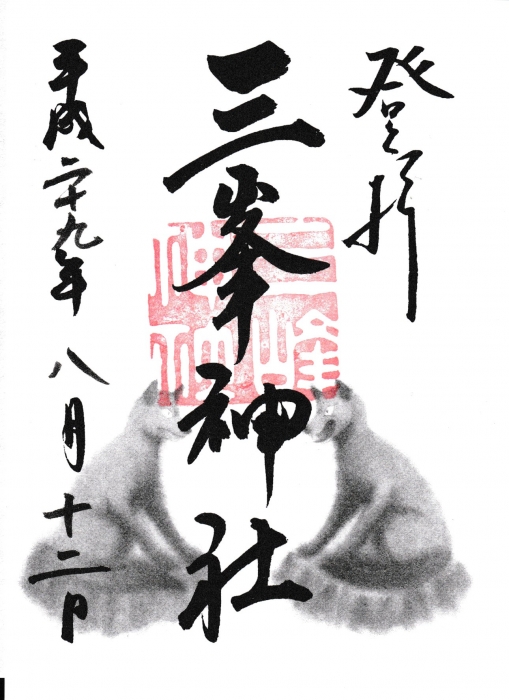 登拝
三峯神社
三峰神社
平成二十九年八月十二日